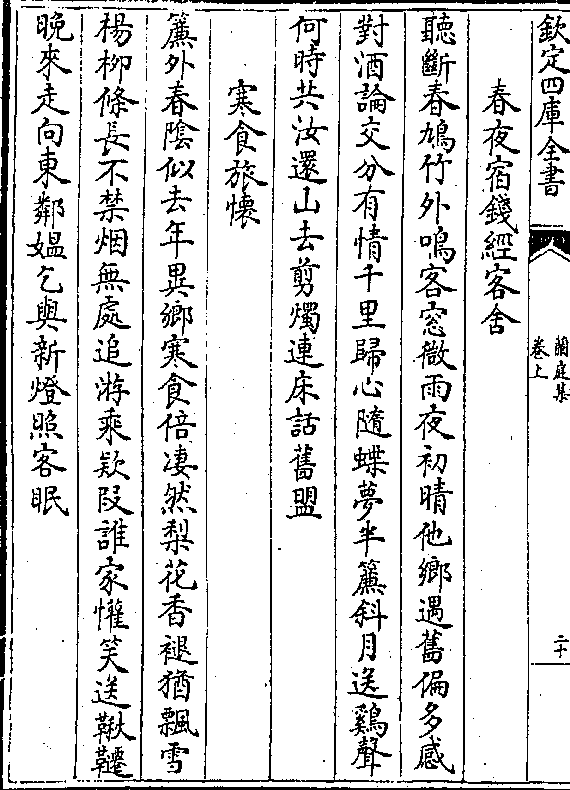 欽定四庫全書
蘭庭集
卷上
二十
春夜宿錢經客舍
聽斷春鳩竹外鳴客窓微雨夜初晴他鄉遇舊偏多感
對酒論交分有情千里歸心隨蝶夢半簾斜月送鷄聲
何時共汝還山去剪燭連床話舊盟
寒食旅懷
簾外春陰似去年異鄉寒食倍凄然梨花香褪猶飄雪
楊柳條長不禁烟無處追游乘欵段誰家懽笑送鞦韆
晚來走向東鄰媪乞與新燈照客眠